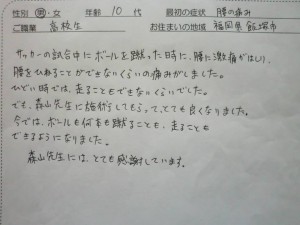 性別 男・女 年齢 10代 最初の症状 腰の痛み
ご職業 高校生 お住まいの地域 福岡県飯塚市
サッカーの試合中にボールを蹴った時に、腰に激痛がはしり、
腰をひねることができないくらいの痛みがしました。
ひどい時では、走ることもできないくらいでした。
でも、森山先生に施術してもらって、とても良くなりました。
今では、ボールも何本も蹴ることも、走ることも
できるようになりました。
森山先生には、とても感謝しています。